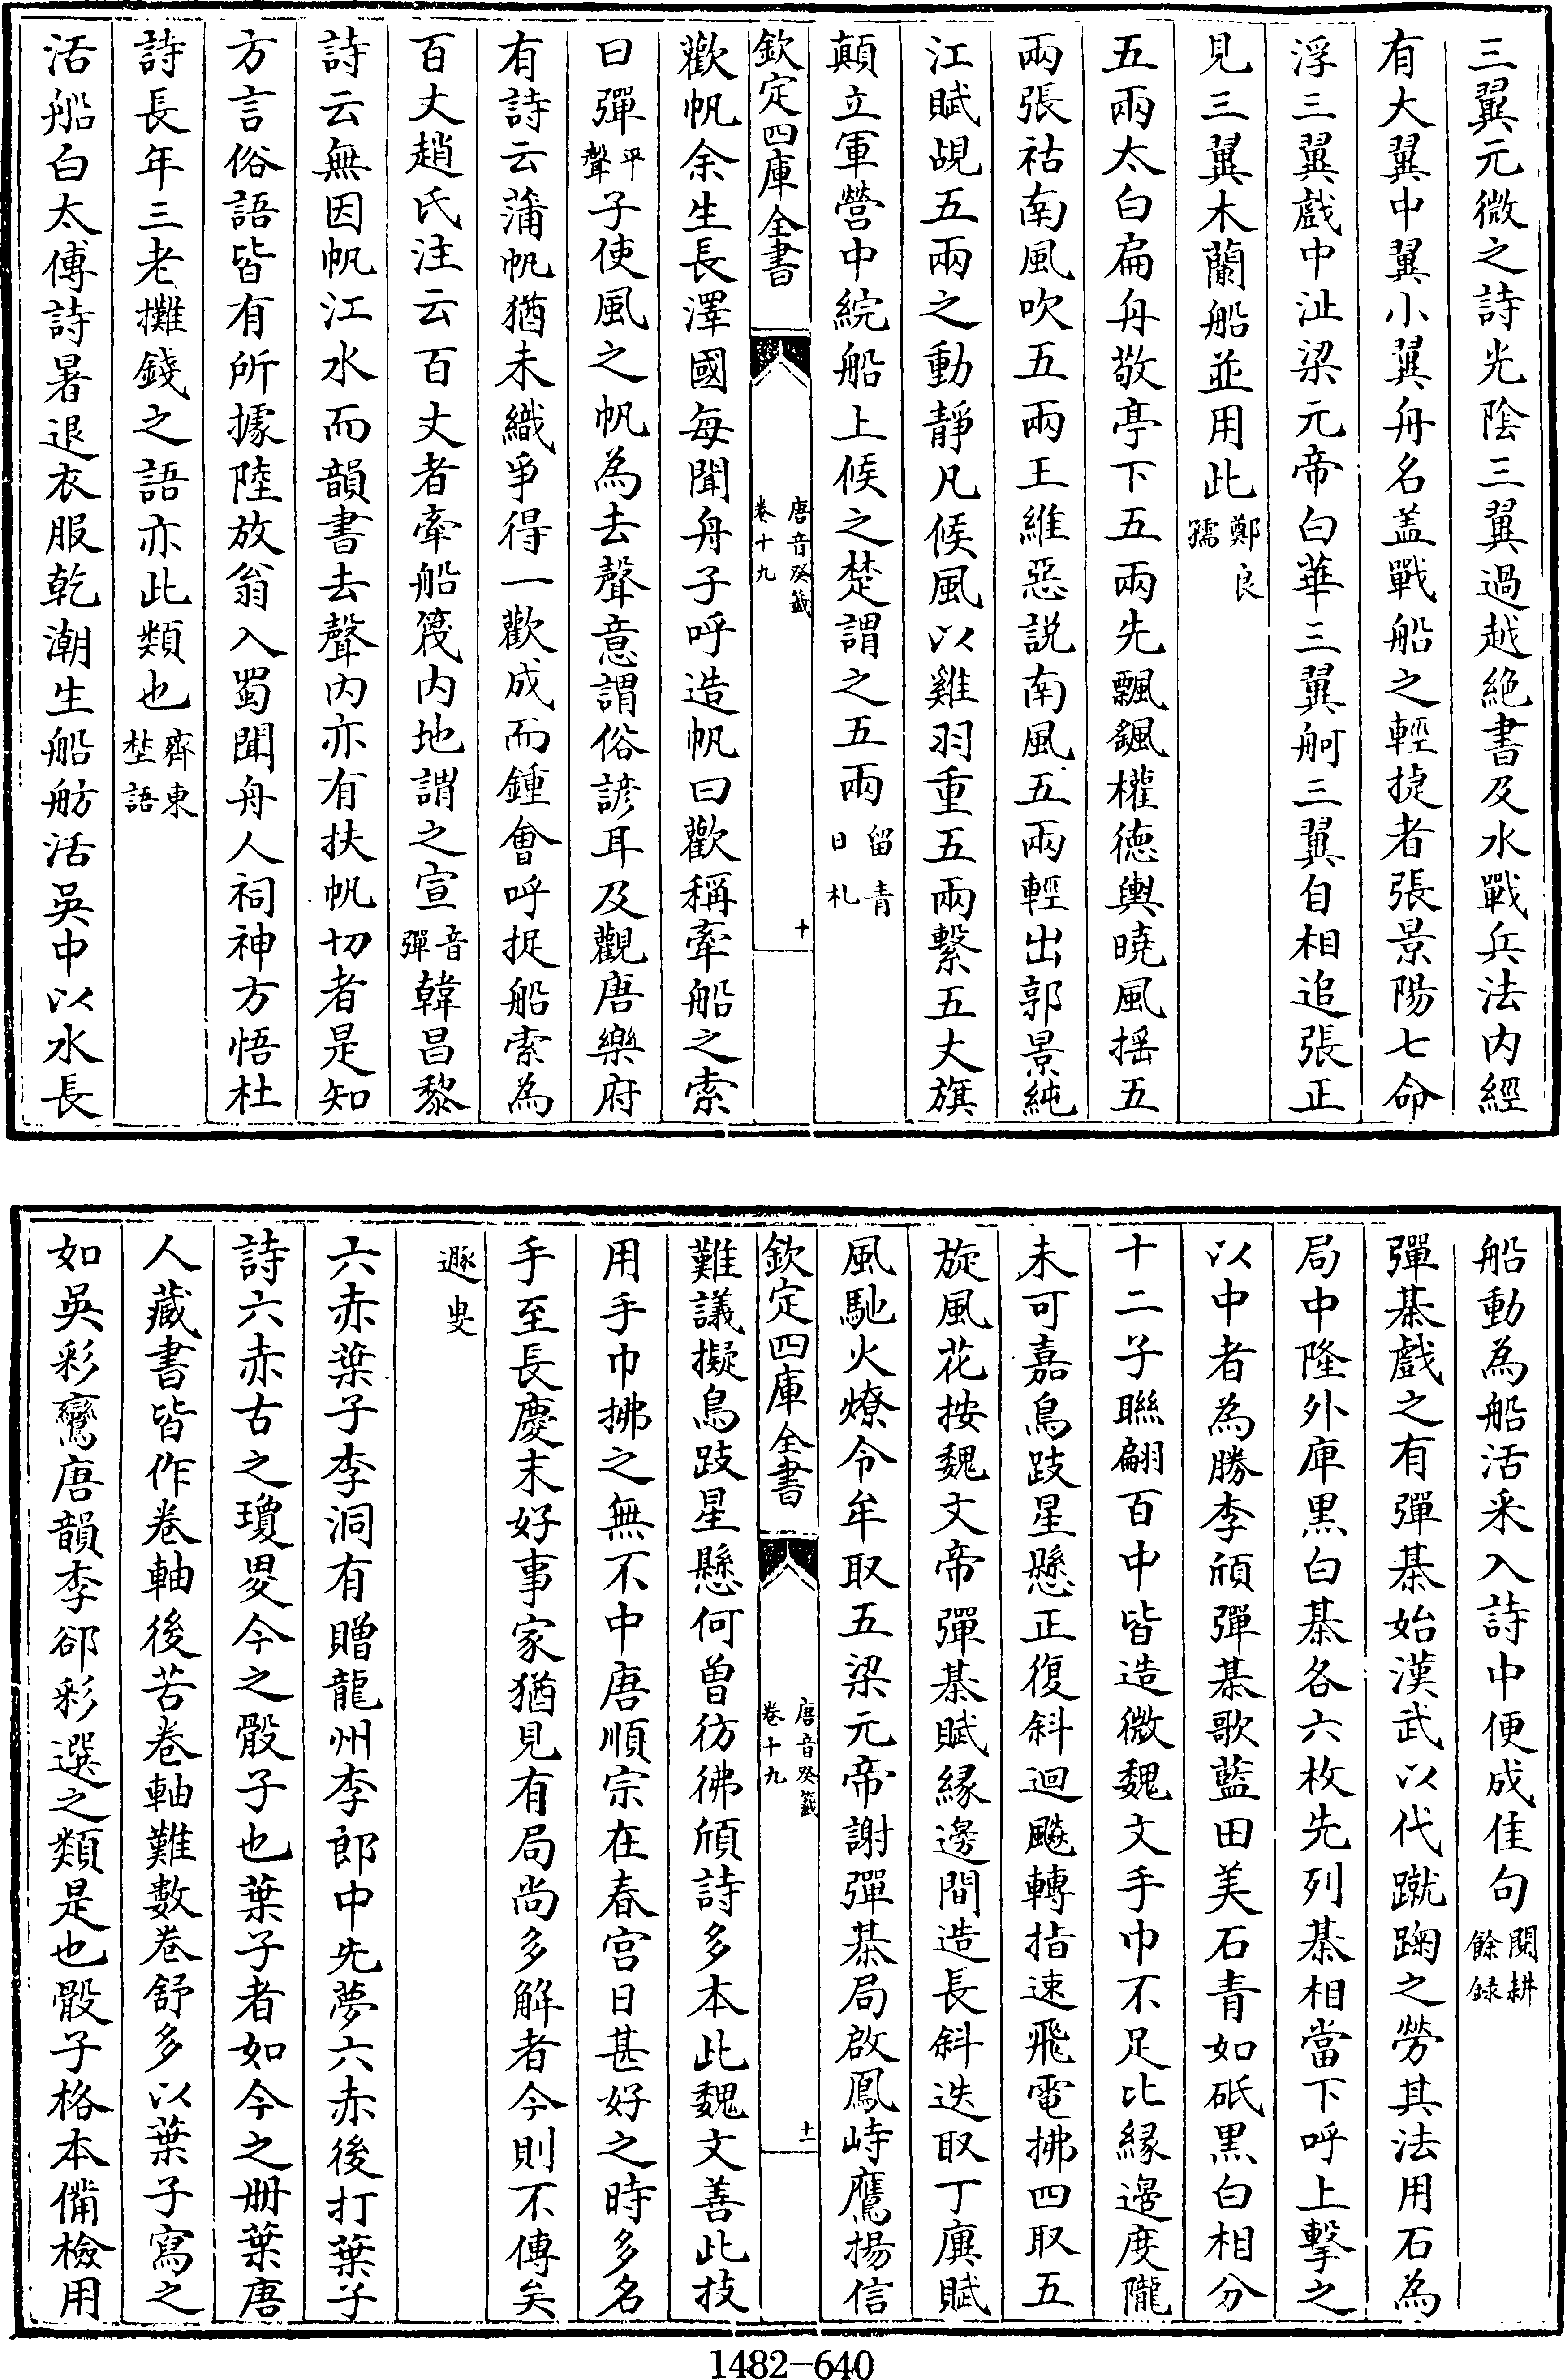 三翼元微之詩光陰三翼過越絶書及水戰兵法内經
有大翼中翼小翼舟名盖戰船之輕捷者張景陽七命
浮三翼戲中沚梁元帝白華三翼舸三翼自相追張正
見三翼木蘭船並用此鄭良孺
五兩太白扁舟敬亭下五兩先飄颻權德輿曉風揺五
兩張祜南風吹五兩王維惡説南風五兩輕出郭景純
江賦覘五兩之動靜凡候風以雞羽重五兩繫五丈旗
顛立軍營中綄船上候之楚謂之五兩留青日札
欽定四庫全書
唐音癸籖
卷十九
十
歡帆余生長澤國每聞舟子呼造帆曰歡稱牽船之索
曰彈平聲子使風之帆為去聲意謂俗諺耳及觀唐樂府
有詩云蒲帆猶未織爭得一歡成而鍾會呼捉船索為
百丈趙氏注云百丈者牽船筏内地謂之宣音彈韓昌黎
詩云無因帆江水而韻書去聲内亦有扶帆切者是知
方言俗語皆有所據陸放翁入蜀聞舟人祠神方悟杜
詩長年三老攤錢之語亦此類也齊東埜語
活船白太傅詩暑退衣服乾潮生船舫活吳中以水長
船動為船活采入詩中便成佳句閱耕餘録
彈棊戲之有彈棊始漢武以代蹴踘之勞其法用石為
局中隆外庳黒白棊各六枚先列棊相當下呼上擊之
以中者為勝李頎彈棊歌藍田美石青如砥黒白相分
十二子聯翩百中皆造微魏文手巾不足比縁邉度隴
未可嘉鳥跂星懸正復斜迴飈轉指速飛電拂四取五
旋風花按魏文帝彈棊賦縁邊間造長斜迭取丁廙賦
風馳火燎令牟取五梁元帝謝彈棊局啟鳳峙鷹揚信
欽定四庫全書
唐音癸籖
卷十九
十一
難議擬鳥跂星懸何曽彷彿頎詩多本此魏文善此技
用手巾拂之無不中唐順宗在春宫日甚好之時多名
手至長慶末好事家猶見有局尚多解者今則不傳矣
遯叟
六赤葉子李洞有贈龍州李郎中先夢六赤後打葉子
詩六赤古之瓊畟今之骰子也葉子者如今之册葉唐
人藏書皆作卷軸後苦卷軸難數卷舒多以葉子寫之
如吳彩鸞唐韻李郃彩選之類是也骰子格本備檢用
1482-640